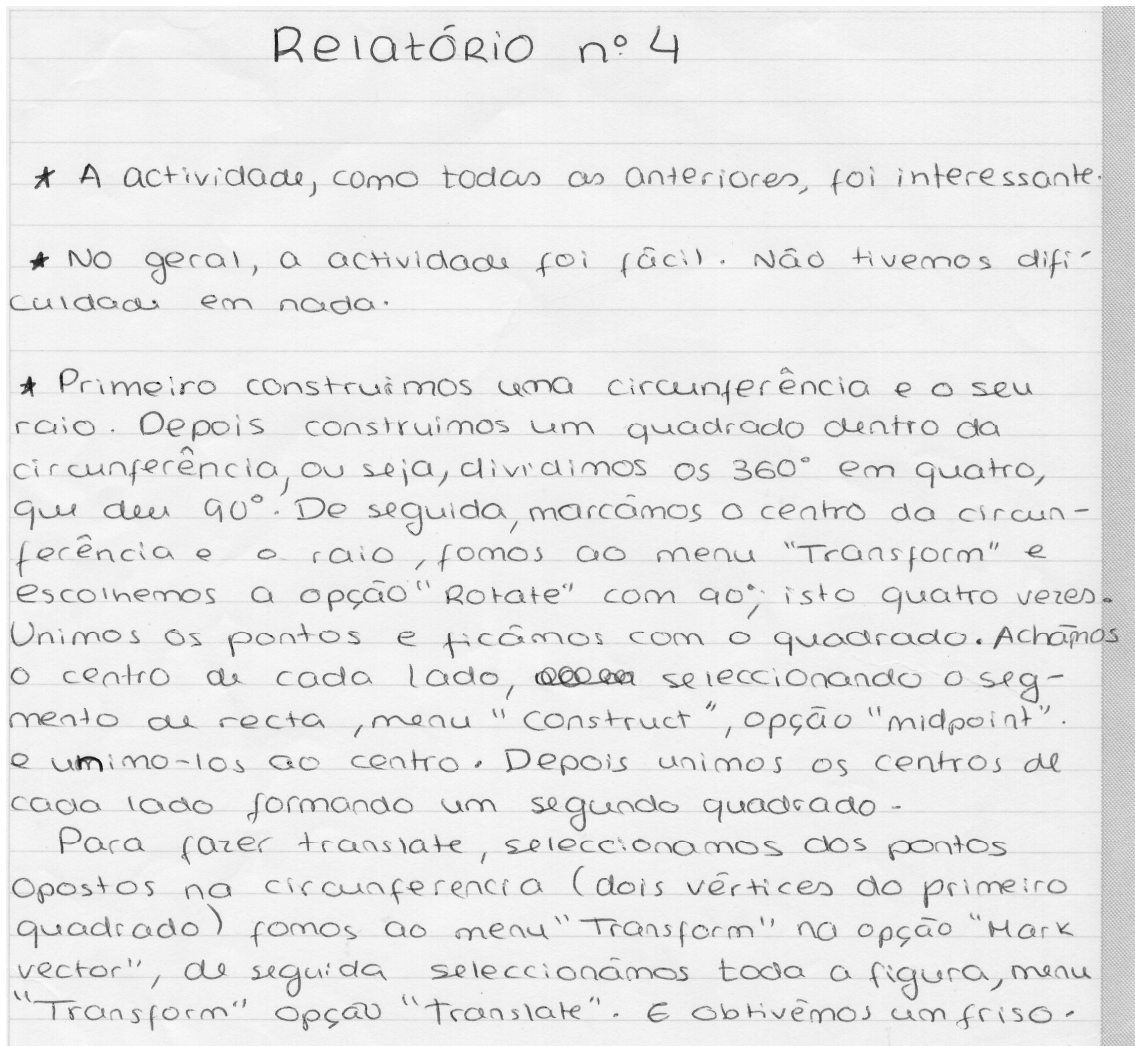 Relatório nº 4
* A actividade, como todas as anteriores, foi interessante.
* No geral, a actividade foi fácil. Não tivemos difi-
culdade em nada.
* Primeiro construímos uma circunferência e o seu
raio. Depois construimos um quadrado dentro da
circunferência, ou seja, dividimos os 360° em quatro,
que deu 90°. De seguida, marcámos o centro da circun-
ferência e o raio, fomos ao menu "Transform" e
escolhemos a opção "Rotate" com 90°; isto quatro vezes.
Unimos os pontos e ficámos com o quadrado. Achámos
o centro de cada lado, seleccionando o seg-
mento de recta, menu "Construct", opção "midpoint".
e unimo-los ao centro. Depois unimos os centros de
cada lado formando um segundo quadrado.
Para fazer translate, seleccionamos dos pontos
opostos na circunferencia (dois vértices do primeiro
quadrado) fomos ao menu "Transform" na opção "Mark
vector", de seguida seleccionámos toda a figura, menu
"Transform" opção "Translate". E obtivémos um friso.